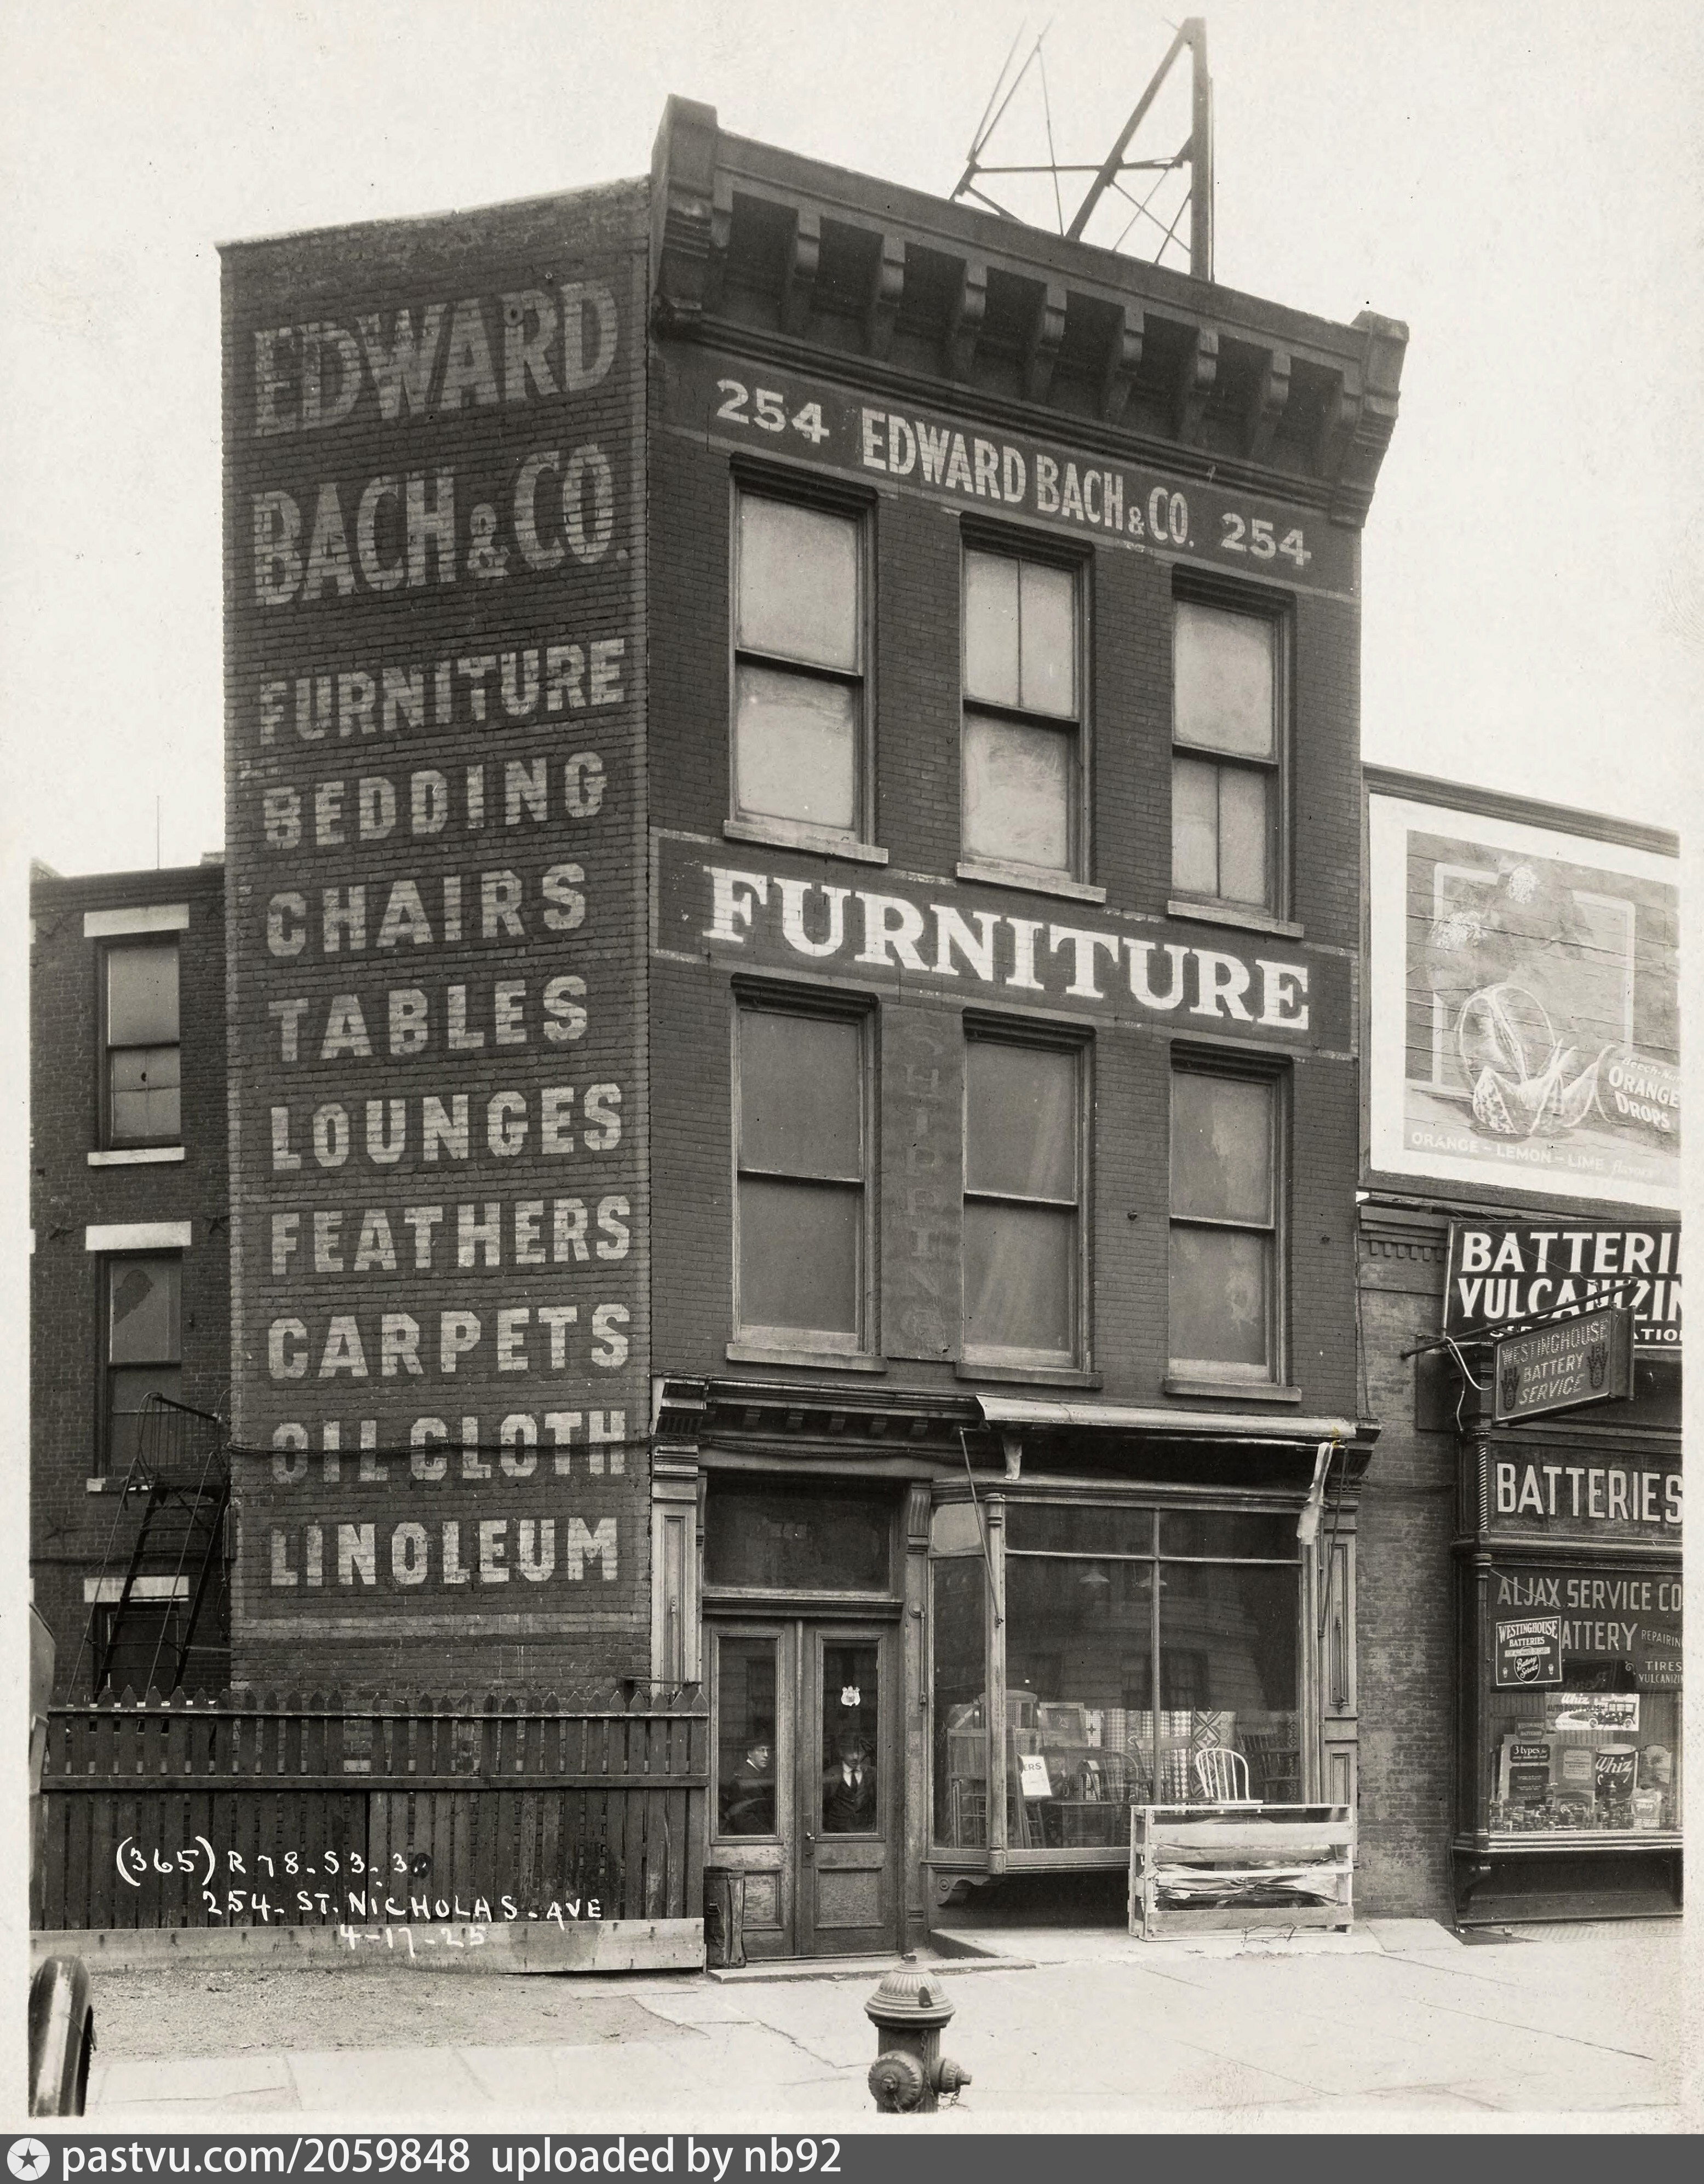 EDWARD
BACH & CO.
FURNITURE
BEDDING
CHAIRS
TABLES
LOUNGES
FEATHERS
CARPETS
OIL CLOTH
LINOLEUM
254 EDWARD BACH & CO. 254
FURNITURE
SHIPPING
Beech-Nut
ORANGE
DROPS
ORANGE - LEMON - LIME flavors
BATTERI
VULCANIZIN
WESTINGHOUSE
BATTERY
SERVICE
BATTERIES
ALJAX SERVICE CO
ATTERY
REPAIRIN
TIRES
VULCANIZI
WESTINGHOUSE
BATTERIES
Battery
Service
Whiz
3 types
Whiz
ERS
(365) R 78-S3-3.
254- ST. NICHOLAS-AVE
4-17-25
pastvu.com/2059848 uploaded by nb92